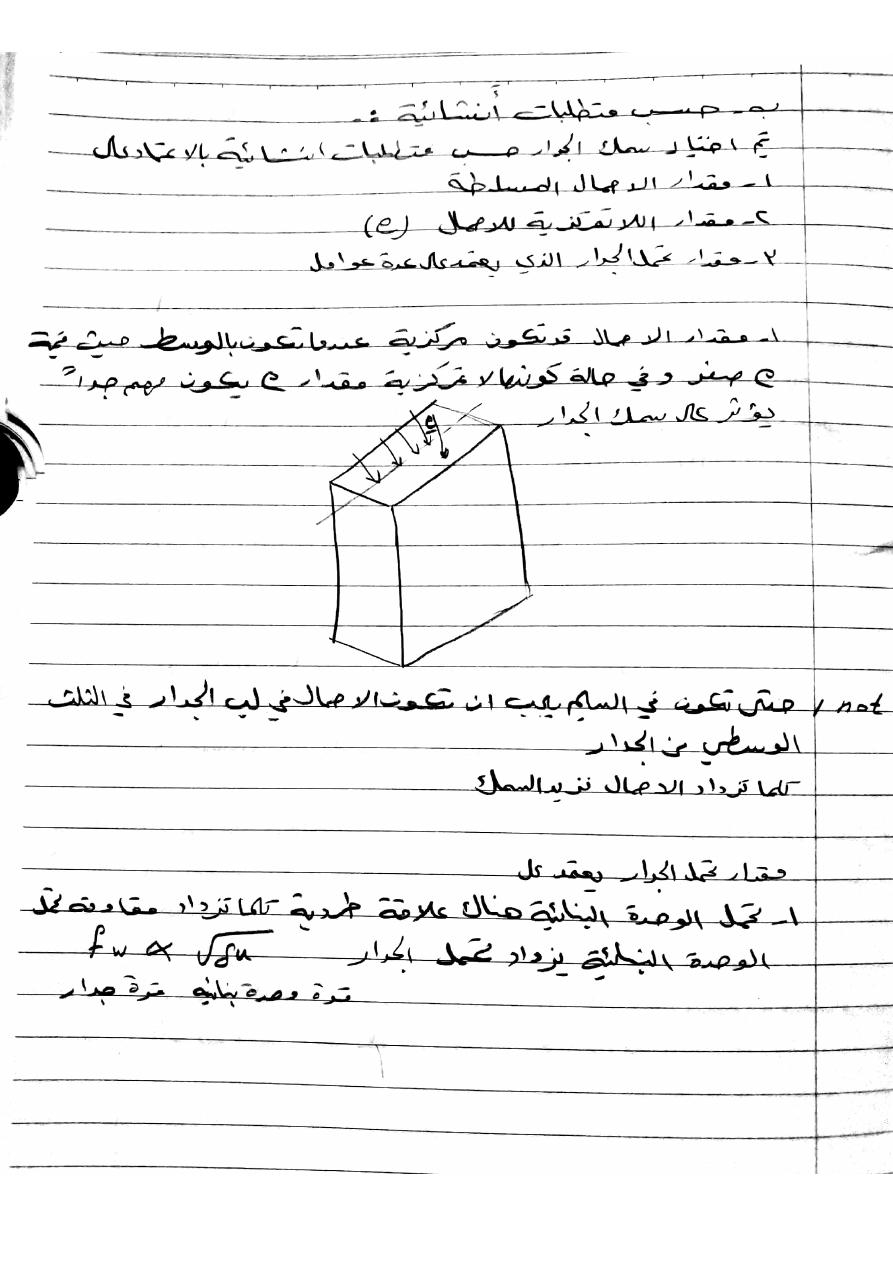 ب- حسب متطلبات أنشائية :-
يتم اختيار سمك الجدار حسب متطلبات انشائية بالاعتماد على
١- مقدار الاحمال المسلطة
٢- مقدار اللاتمركزية للاحمال (e)
٣- مقدار تحمل الجدار الذي يعتمد على عدة عوامل
١- مقدار الاحمال قد تكون مركزية عندما تكون بالوسط حيث قيمة
e صفر وفي حالة كونها لا تمركزية مقدار e يكون مهم جداً
يؤثر على سمك الجدار
e
not / حتى تكون في السليم يجب ان تكون الاحمال في لب الجدار في الثلث
الوسطي من الجدار
كلما تزداد الاحمال نزيد السمك
مقدار تحمل الجدار يعتمد على
١- تحمل الوحدة البنائية هناك علاقة طردية كلما تزداد مقاومة تحمل
الوحدة البنائية يزداد تحمل الجدار fw ∝ √fu
قوة وحدة بنائية قوة جدار